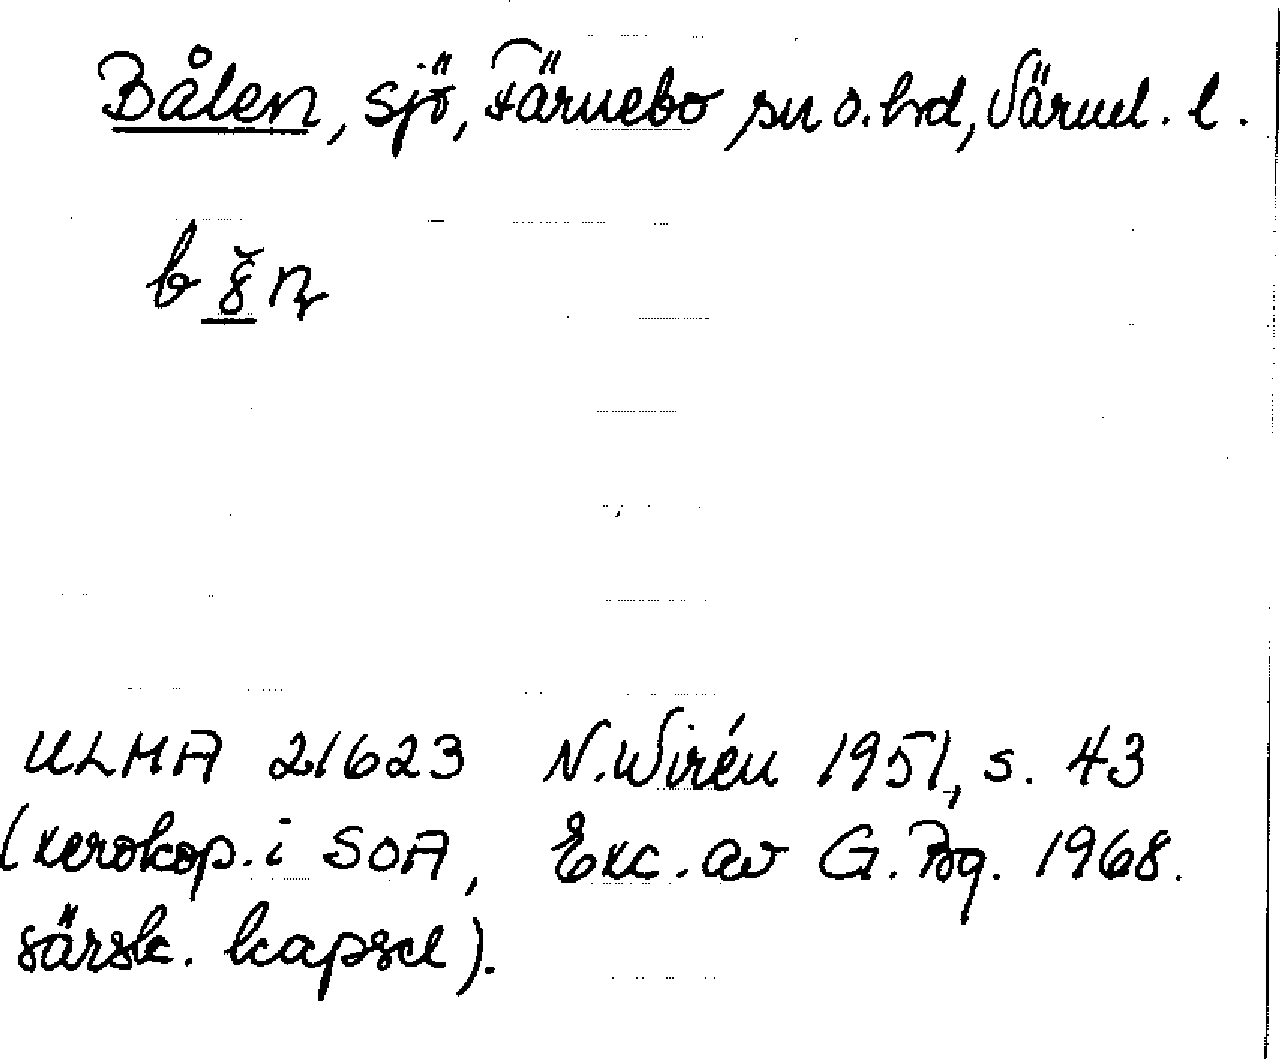 Bålen, sjö, Färnebo sn o. hd, Värml. l.
ULMA 21623 N. Wirén 1951, s. 43
(xerokop. i SOA, Exc. av G. Bg. 1968.
särsk. kapsel).